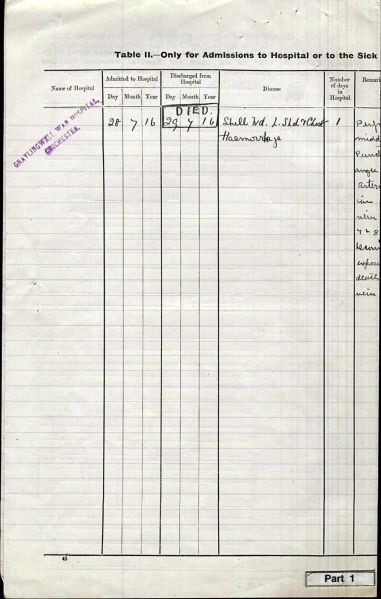 Table II.—Only for Admissions to Hospital or to the Sick
Name of Hospital
Admitted to Hospital
Day Month Year
Discharged from Hospital
Day Month Year
Disease
Number of days in Hospital
Remark
GRAYLINGWELL WAR HOSPITAL,
CHICHESTER.
28 7 16
DIED.
29 7 16
Shell Wd. L. Shd & Chest
Haemorrhage
1
Perf
midd
Punct
angle
arter
vein
7 & 8
expos
death
vein
45
Part 1